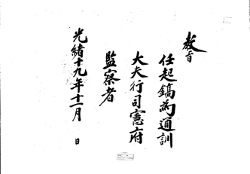 教旨
任起鎬爲通訓
大夫行司憲府
監察者
光緒十九年十一月 日